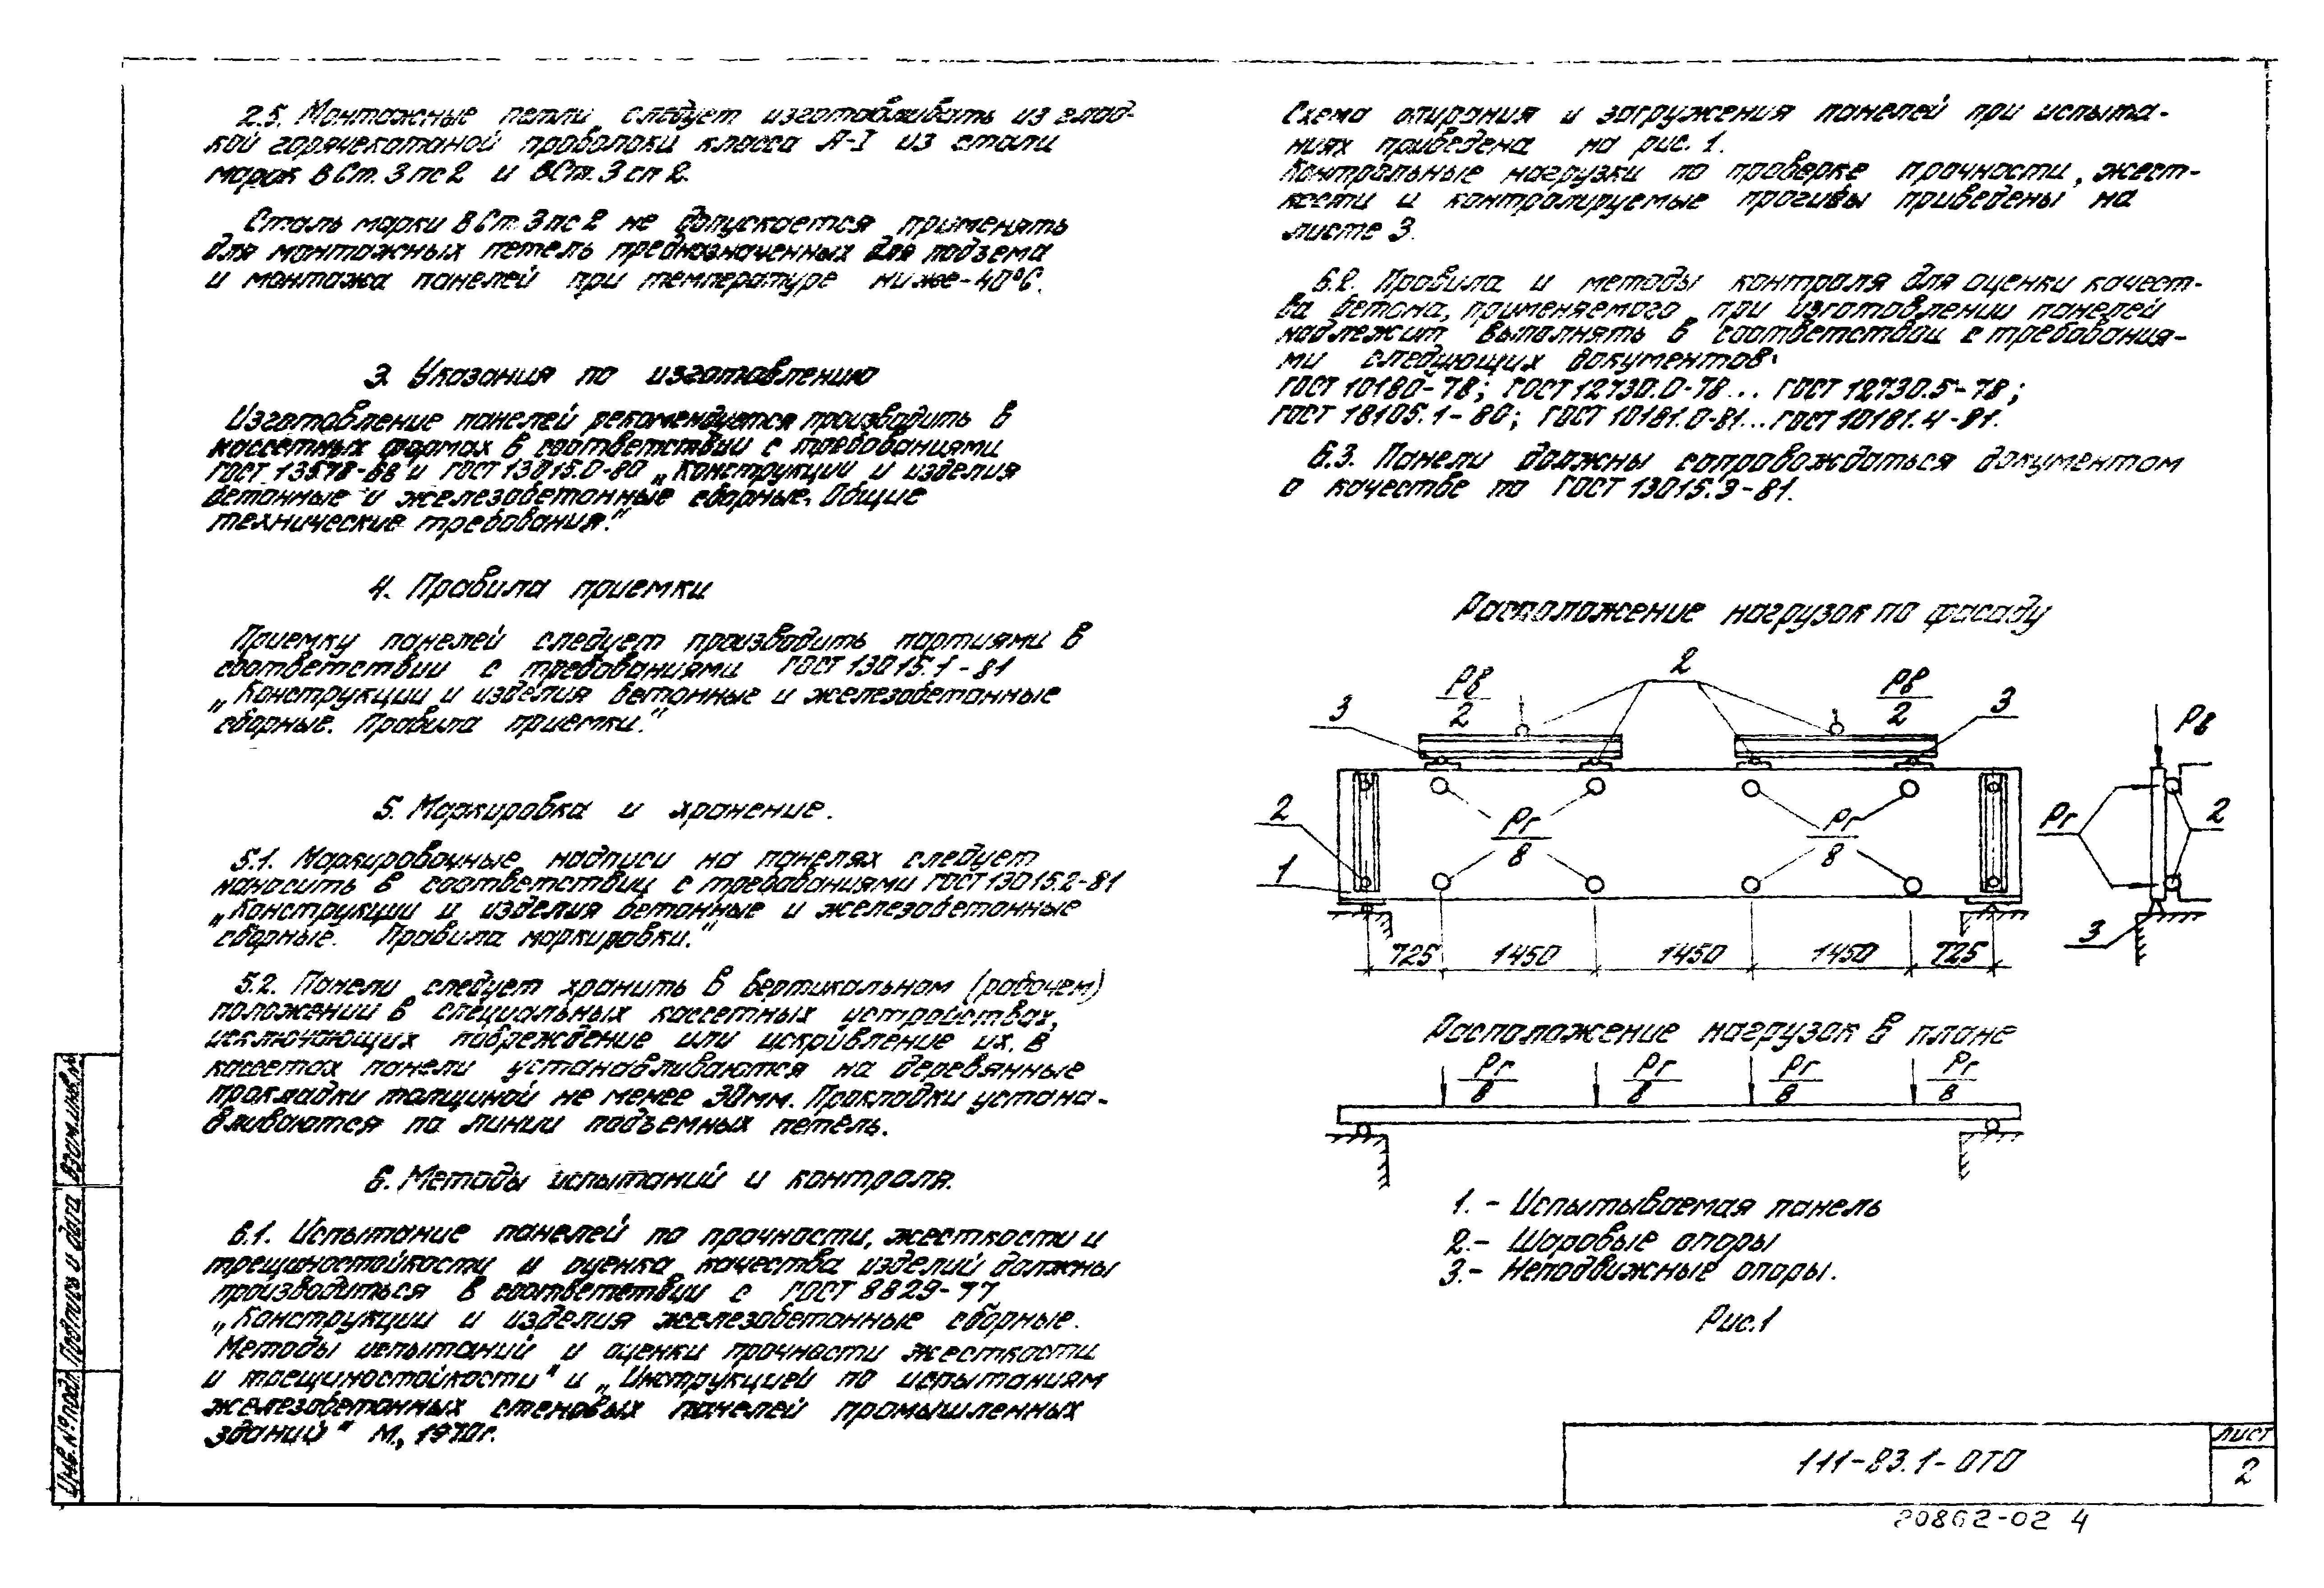 2.5. Монтажные петли следует изготавливать из глад-
кой горячекатаной проволоки класса А-I из стали
марок ВСт.3пс2 и ВСт.3сп2.
Сталь марки ВСт.3пс2 не допускается применять
для монтажных петель предназначенных для подъема
и монтажа панелей при температуре ниже -40°С.
3. Указания по изготовлению
Изготовление панелей рекомендуется производить в
кассетных формах в соответствии с требованиями
ГОСТ 13578-68 и ГОСТ 13015.0-80 „Конструкции и изделия
бетонные и железобетонные сборные. Общие
технические требования."
4. Правила приемки
Приемку панелей следует производить партиями в
соответствии с требованиями ГОСТ 13015.1-81
„Конструкции и изделия бетонные и железобетонные
сборные. Правила приемки."
5. Маркировка и хранение.
5.1. Маркировочные надписи на панелях следует
наносить в соответствии с требованиями ГОСТ 13015.2-81
„Конструкции и изделия бетонные и железобетонные
сборные. Правила маркировки."
5.2. Панели следует хранить в вертикальном (рабочем)
положении в специальных кассетных устройствах,
исключающих повреждение или искривление их. В
кассетах панели устанавливаются на деревянные
прокладки толщиной не менее 30мм. Прокладки устана-
вливаются по линии подъемных петель.
6. Методы испытаний и контроля.
6.1. Испытание панелей по прочности, жесткости и
трещиностойкости и оценка качества изделий должны
производиться в соответствии с ГОСТ 8829-77
„Конструкции и изделия железобетонные сборные.
Методы испытаний и оценки прочности жесткости
и трещиностойкости" и „Инструкцией по испытаниям
железобетонных стеновых панелей промышленных
зданий" М., 1970г.
Схема опирания и загружения панелей при испыта-
ниях приведена на рис. 1.
Контрольные нагрузки по проверке прочности, жест-
кости и контролируемые прогибы приведены на
листе 3.
6.2. Правила и методы контроля для оценки качест-
ва бетона, применяемого при изготовлении панелей
надлежит выполнять в соответствии с требования-
ми следующих документов:
ГОСТ 10180-78; ГОСТ 12730.0-78... ГОСТ 12730.5-78;
ГОСТ 18105.1-80; ГОСТ 10181.0-81...ГОСТ 10181.4-81.
6.3. Панели должны сопровождаться документом
о качестве по ГОСТ 13015.3-81.
Расположение нагрузок по фасаду
3 Рв/2 2 Рв/2 3 Рв
2 Рг/8 Рг/8 Рг 2
1 3
725 1450 1450 1450 725
Расположение нагрузок в плане
Рг/8 Рг/8 Рг/8 Рг/8
1. - Испытываемая панель
2.- Шаровые опоры
3.- Неподвижные опоры.
Рис.1
Инв.№подл. Подпись и дата Взам.инв.№
111-83.1-0ТО
Лист
2
20862-02 4